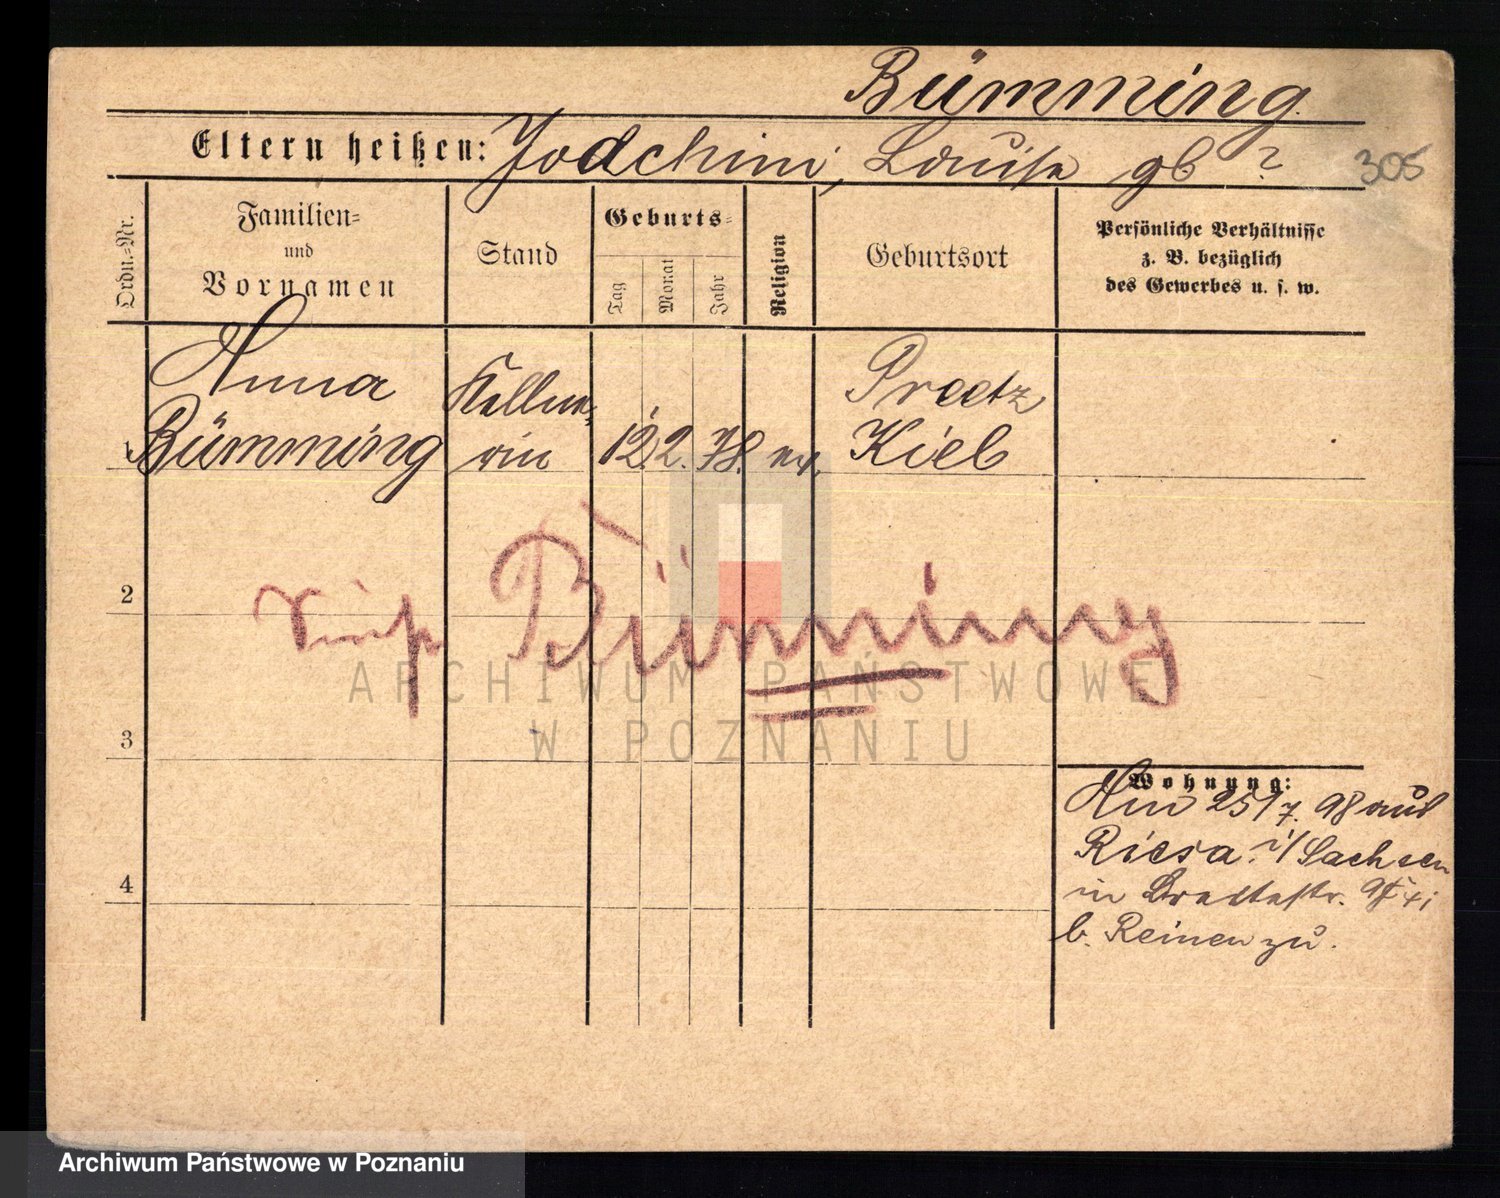 Bümming.
Eltern heißen: Joachim, Louise gb ?
305
Ordn.-Nr.
Familien- und Vornamen
Stand
Geburts-
Tag
Monat
Jahr
Religion
Geburtsort
Persönliche Verhältnisse
z. B. bezüglich
des Gewerbes u. s. w.
Anna
Bümming
Kellne-
rin
12. 2. 78. ev.
Preetz
Kiel
1
2
Bümming
3
4
Wohnung:
Am 25/7. 98 aus
Riesa i/Sachsen
in
b. Reinen zu.
ARCHIWUM PAŃSTWOWE
W POZNANIU
Archiwum Państwowe w Poznaniu